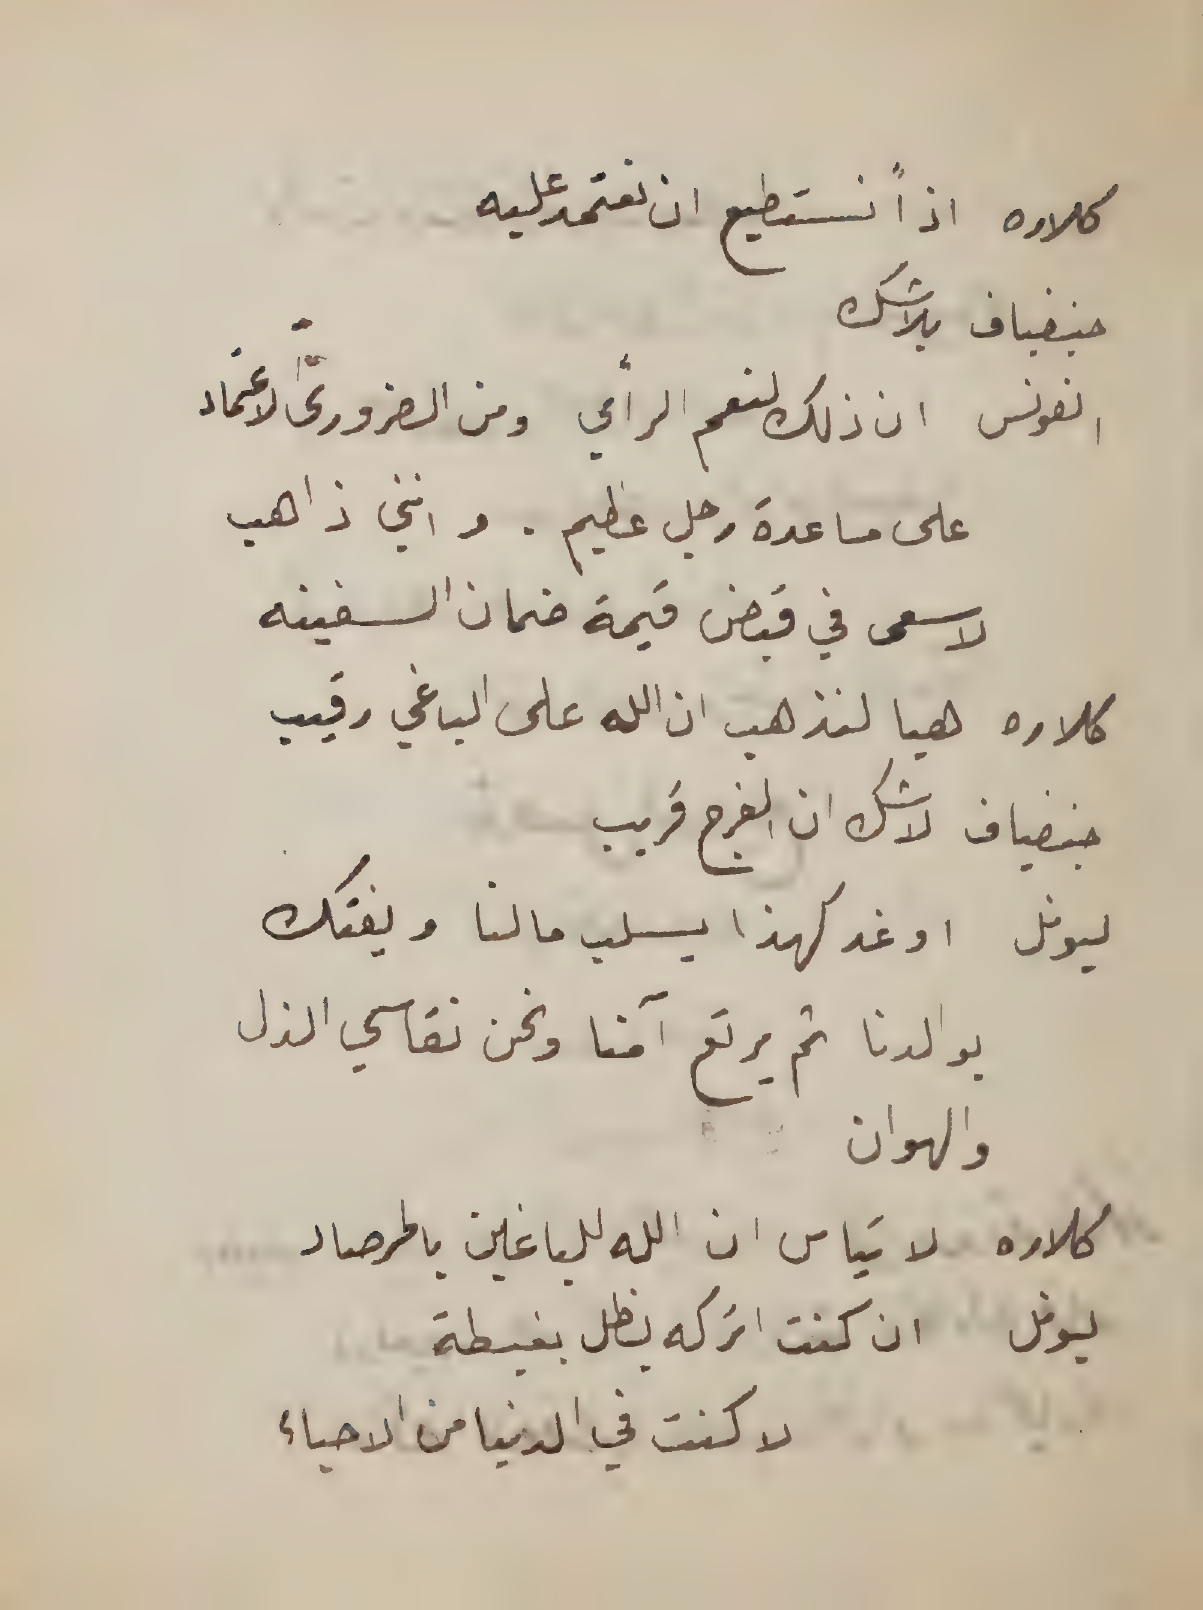 كلاره اذاً نستطيع ان نعتمد عليه
جنفياف بلاشك
الفونس ان ذلك لنعم الرأي ومن الضروري الاعتماد
على مساعدة رجل عظيم . و انني ذاهب
لاسعى في قبض قيمة ضمان السفينه
كلاره هيا لنذهب ان الله على الباغي رقيب
جنفياف لاشك ان الفرج قريب
ليونل اوغد كهذا يسلب مالنا ويفتك
بوالدنا ثم يرتع آمنا ونحن نقاسي الذل
والهوان
كلاره لا تيأس ان الله للباغين بالمرصاد
ليونل ان كنت اتركه يظل بغبطة
لا كنت في الدنيا من الاحياء